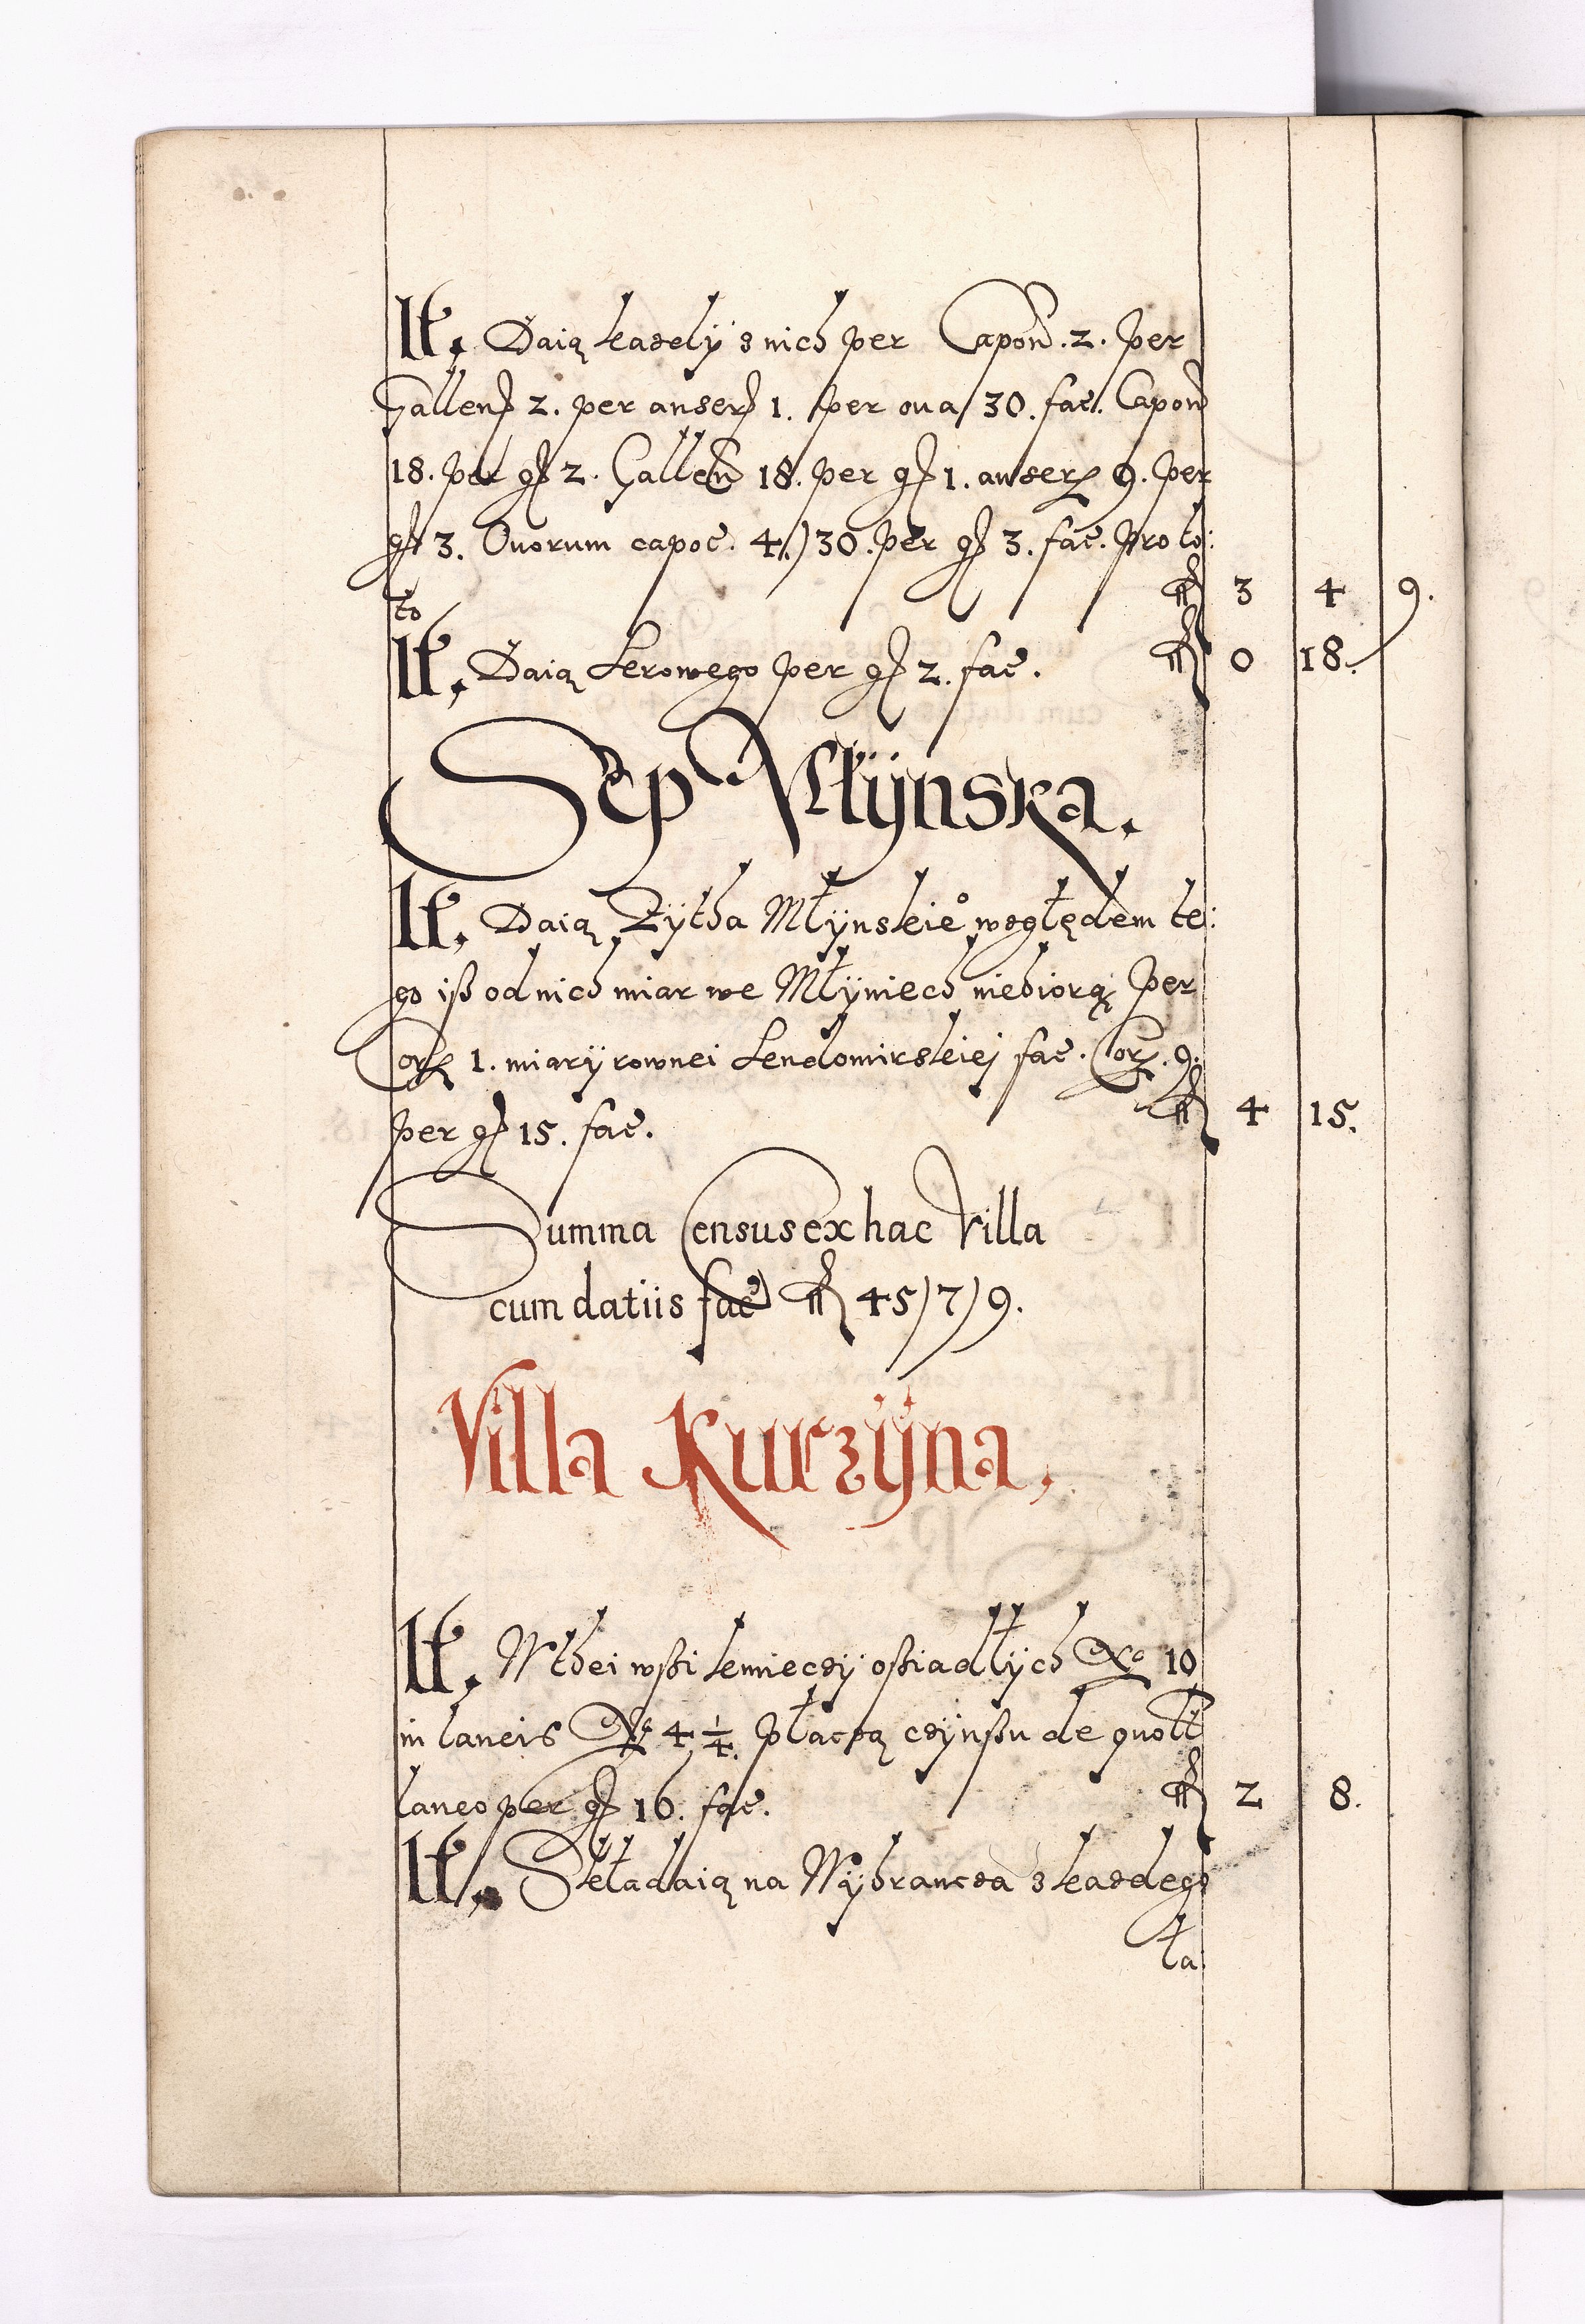 It. Daią kazdÿ z nich per Capon. 2. per
Gallen 2. per anser 1. per oua 30. fac. Capon
18. per gr 2. Gallen 18. per gr 1. anser 9. per
gr 3. Ouorum capoc. 4.) 30. per gr 3. fac. pro to:
to fl 3 4 9.
It. Daią Serowego per gr 2. fac. fl 0 18.
Sep Młÿnska.
It. Daią Zÿtha Młÿnskieo względem te:
go iß od nich miar we Młÿniech niebiorą per
Cor 1. miarÿ rownei Sendomirskiej fac. Cor. 9.
per gr 15. fac. fl 4 15.
Summa Census ex hac Villa
cum datiis fac fl 45) 7) 9.
Villa Kurzÿna.
It. W thei wßi kmieczÿ oßiadłÿch No 10
in laneis No 4 1/4. płaczą czÿnßu de quolt
laneo per gr 16. fac. fl 2 8.
It. Składaią na Wÿbrancza z kazdego
ła: